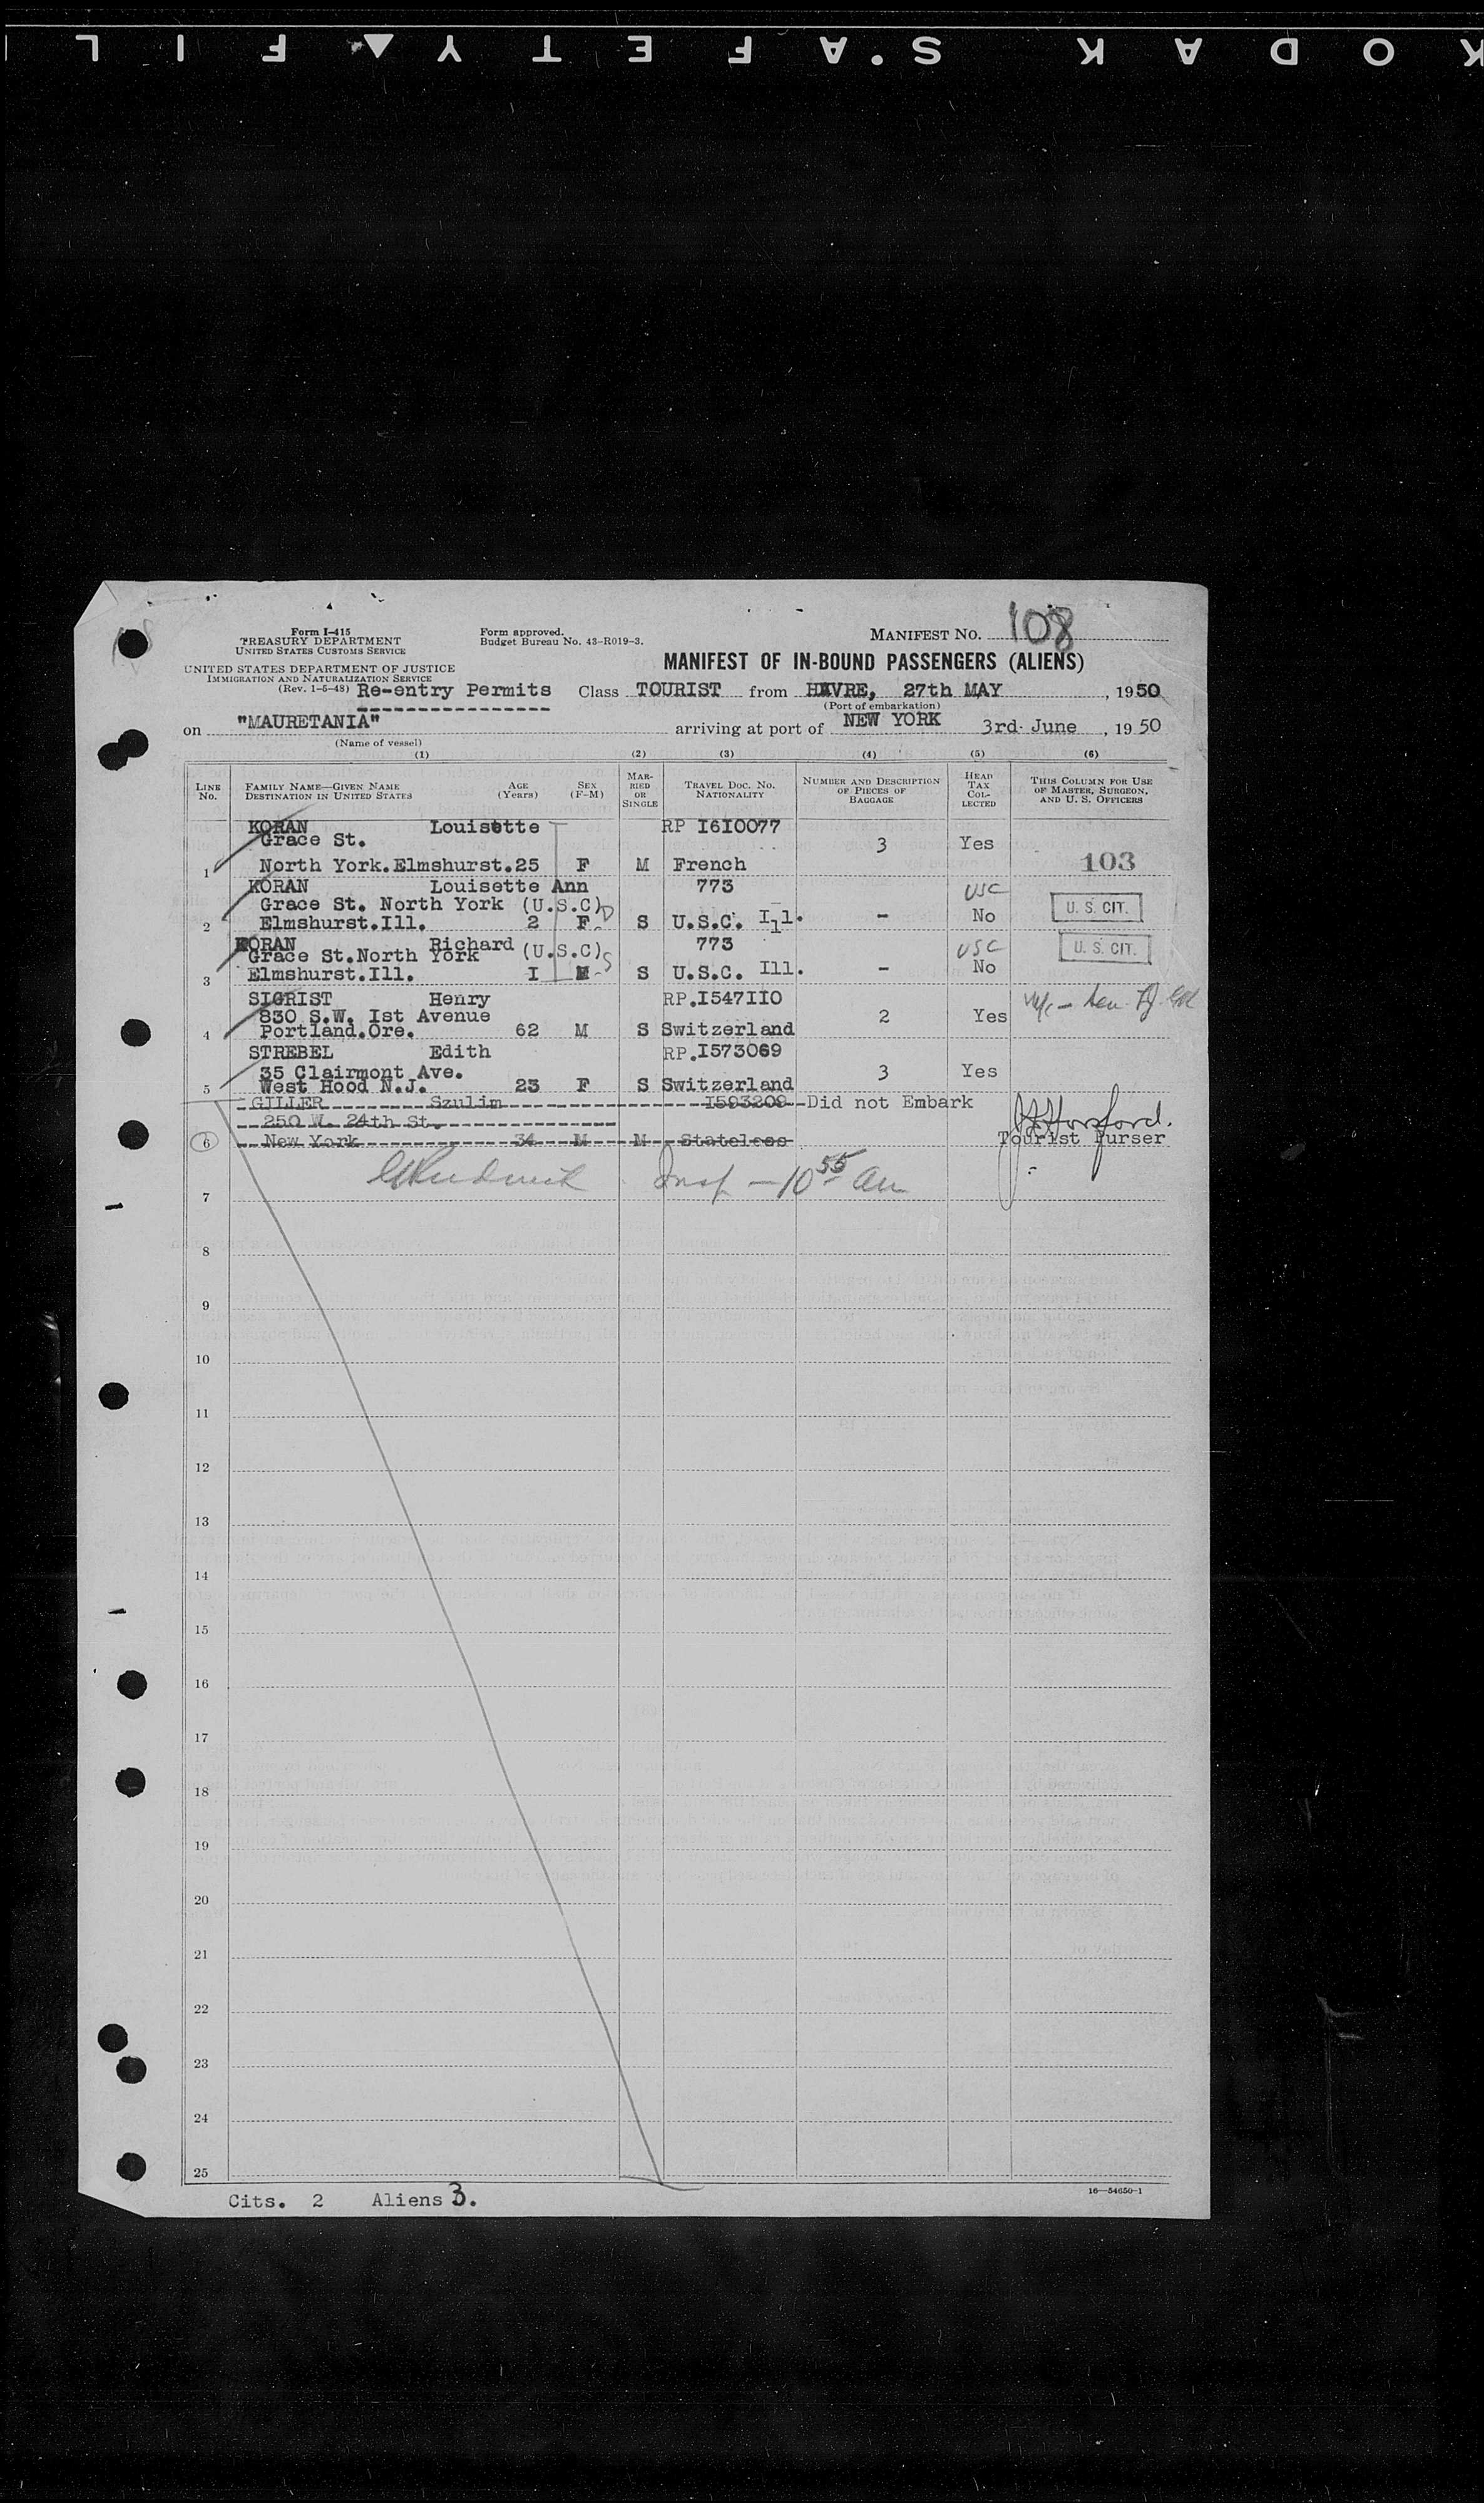 KODAK SAFETY FILM
108
Form I-415
TREASURY DEPARTMENT
UNITED STATES CUSTOMS SERVICE
Form approved.
Budget Bureau No. 43-R019-3.
MANIFEST NO. 108
UNITED STATES DEPARTMENT OF JUSTICE
IMMIGRATION AND NATURALIZATION SERVICE
(Rev. 1-5-48)
MANIFEST OF IN-BOUND PASSENGERS (ALIENS)
Re-entry Permits Class TOURIST from HAVRE, 27th MAY, 1950
(Port of embarkation)
on "MAURETANIA" arriving at port of NEW YORK 3rd June, 1950
(Name of vessel)
(1) (2) (3) (4) (5) (6)
LINE No. FAMILY NAME—GIVEN NAME DESTINATION IN UNITED STATES AGE (Years) SEX (F-M) MARRIED OR SINGLE TRAVEL DOC. NO. NATIONALITY NUMBER AND DESCRIPTION OF PIECES OF BAGGAGE HEAD TAX COLLECTED THIS COLUMN FOR USE OF MASTER, SURGEON, AND U. S. OFFICERS
KORAN Louisette RP I6I0077
Grace St. 3 Yes
1 North York.Elmshurst.25 F M French 103
KORAN Louisette Ann 773 USC
Grace St. North York (U.S.C) - No U. S. CIT.
2 Elmshurst.Ill. 2 F S U.S.C. Ill.
KORAN Richard 773 USC U. S. CIT.
Grace St.North York (U.S.C) - No
3 Elmshurst.Ill. I M S U.S.C. Ill.
SIGRIST Henry RP.I547II0
830 S.W. Ist Avenue 2 Yes
4 Portland.Ore. 62 M S Switzerland
STREBEL Edith RP.I573069
35 Clairmont Ave. 3 Yes
5 West Hood N.J. 23 F S Switzerland
GILLER Szulim I593209 Did not Embark
250 W. 24th St.
6 New York 34 M M Stateless Tourist Purser
Insp - 10 55 am
7
8
9
10
11
12
13
14
15
16
17
18
19
20
21
22
23
24
25
Cits. 2 Aliens 3.
16—54650-1